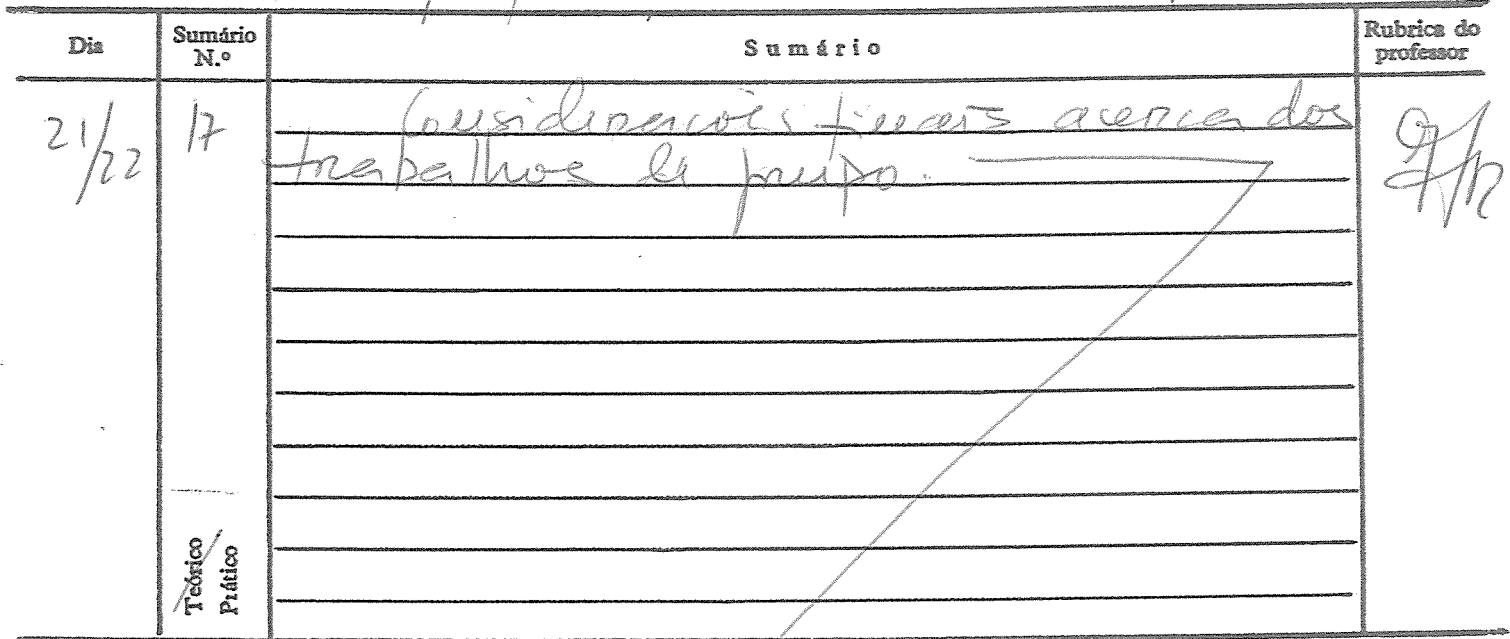 Dia
Sumário N.º
Sumário
Rubrica do professor
21/22
17
Considerações finais acerca dos
trabalhos de grupo.
Teórico
Prático